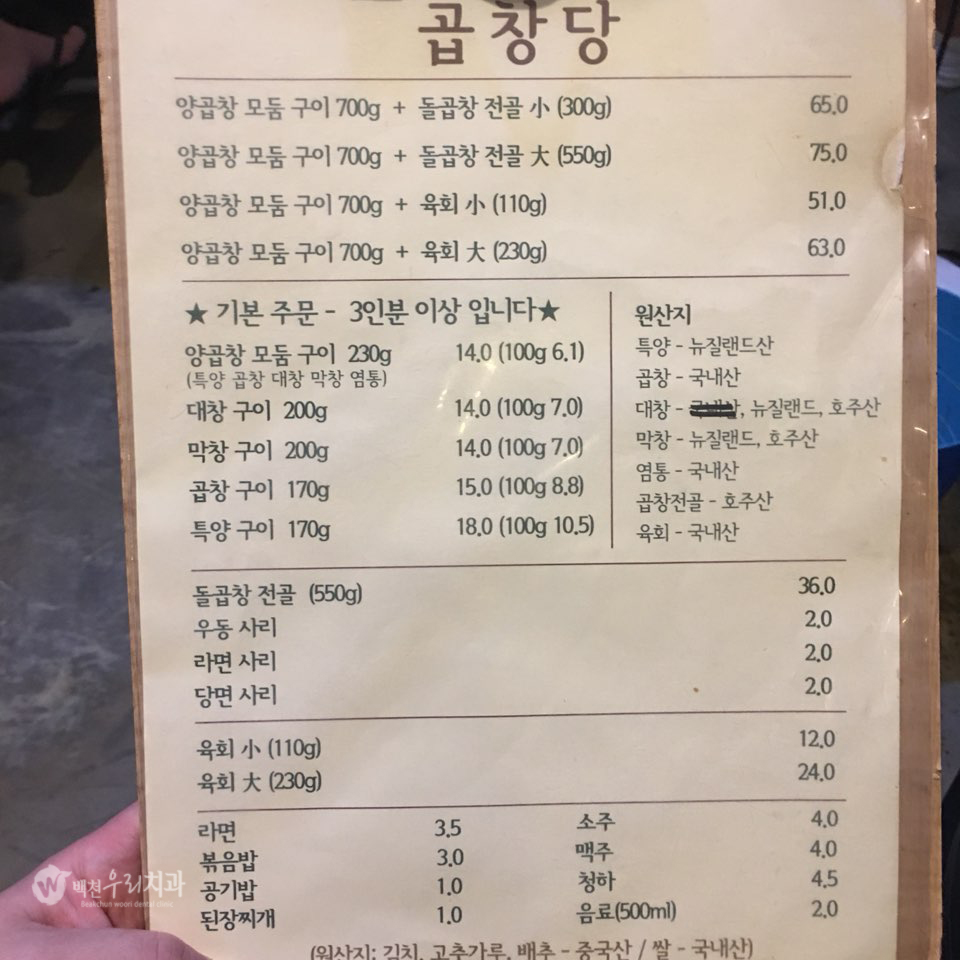 곱창당
양곱창 모둠 구이 700g + 돌곱창 전골 小 (300g) 65.0
양곱창 모둠 구이 700g + 돌곱창 전골 大 (550g) 75.0
양곱창 모둠 구이 700g + 육회 小 (110g) 51.0
양곱창 모둠 구이 700g + 육회 大 (230g) 63.0
★ 기본 주문 - 3인분 이상 입니다★
양곱창 모둠 구이 230g 14.0 (100g 6.1)
(특양 곱창 대창 막창 염통)
대창 구이 200g 14.0 (100g 7.0)
막창 구이 200g 14.0 (100g 7.0)
곱창 구이 170g 15.0 (100g 8.8)
특양 구이 170g 18.0 (100g 10.5)
원산지
특양 - 뉴질랜드산
곱창 - 국내산
대창 - , 뉴질랜드, 호주산
막창 - 뉴질랜드, 호주산
염통 - 국내산
곱창전골 - 호주산
육회 - 국내산
돌곱창 전골 (550g) 36.0
우동 사리 2.0
라면 사리 2.0
당면 사리 2.0
육회 小 (110g) 12.0
육회 大 (230g) 24.0
라면 3.5
볶음밥 3.0
공기밥 1.0
된장찌개 1.0
소주 4.0
맥주 4.0
청하 4.5
음료(500ml) 2.0
(원산지: 김치, 고추가루, 배추 - 중국산 / 쌀 - 국내산)
W 백천우리치과
Beakchun woori dental clinic